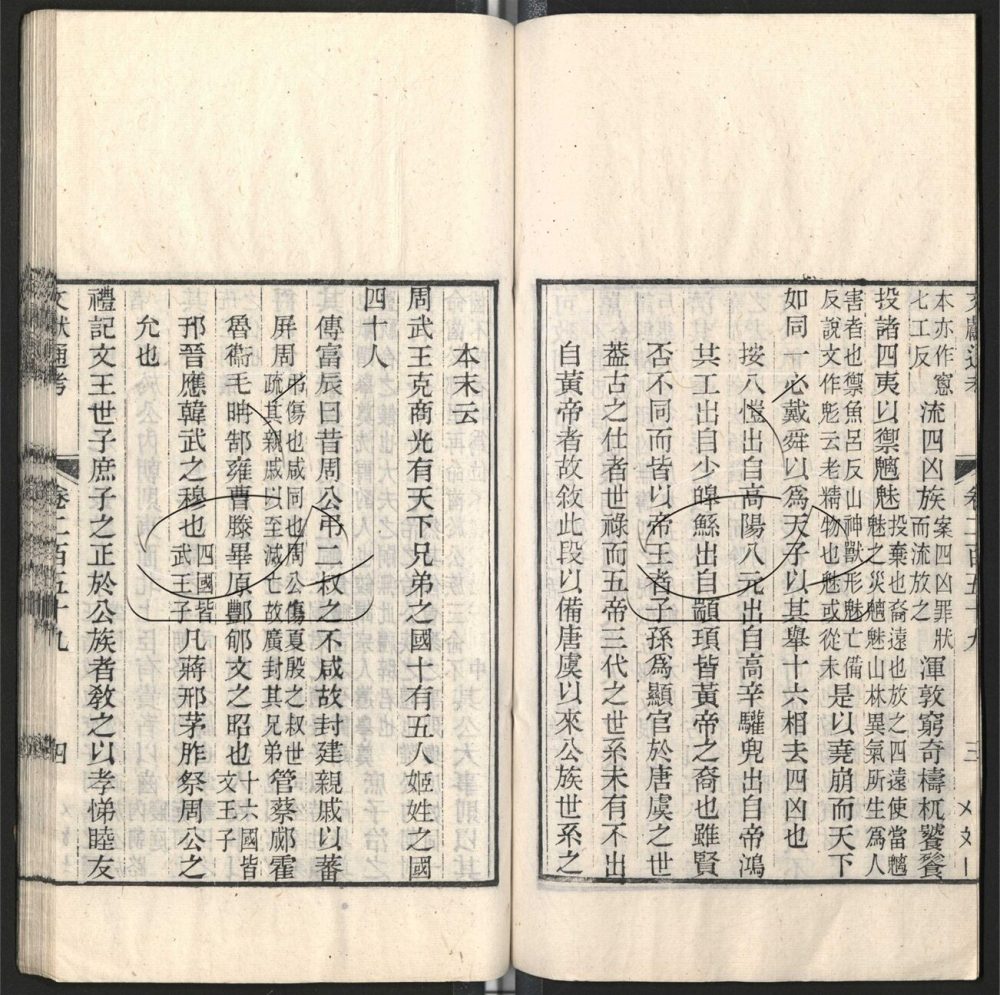 本亦作窻
七工反
流四凶族
案四凶罪狀
而流放之
渾敦窮奇檮杌饕餮
投諸四夷以禦魑魅
投棄也裔遠也放之四遠使當魑
魅之災魑魅山林異氣所生爲人
害者也禦魚呂反山神獸形魅亡備
反說文作鬽云老精物也魅或從未
是以堯崩而天下
如同一心戴舜以爲天子以其舉十六相去四凶也
按八愷出自高陽八元出自高辛驩兜出自帝鴻
共工出自少皥鯀出自顓頊皆黃帝之裔也雖賢
否不同而皆以帝王者子孫爲顯官於唐虞之世
蓋古之仕者世祿而五帝三代之世系未有不出
自黃帝者故敘此段以備唐虞以來公族世系之
卷二百五十九
三
本末云
周武王克商光有天下兄弟之國十有五人姬姓之國
四十人
傳富辰曰昔周公弔二叔之不咸故封建親戚以蕃
屏周
弔傷也咸同也周公傷夏殷之叔世
疏其親戚以至滅亡故廣封其兄弟
管蔡郕霍
魯衞毛聃郜雍曹滕畢原酆郇文之昭也
十六國皆
文王子
邘晉應韓武之穆也
四國皆
武王子
凡蔣邢茅胙祭周公之
允也
禮記文王世子庶子之正於公族者敎之以孝悌睦友
文獻通考
卷二百五十九
四